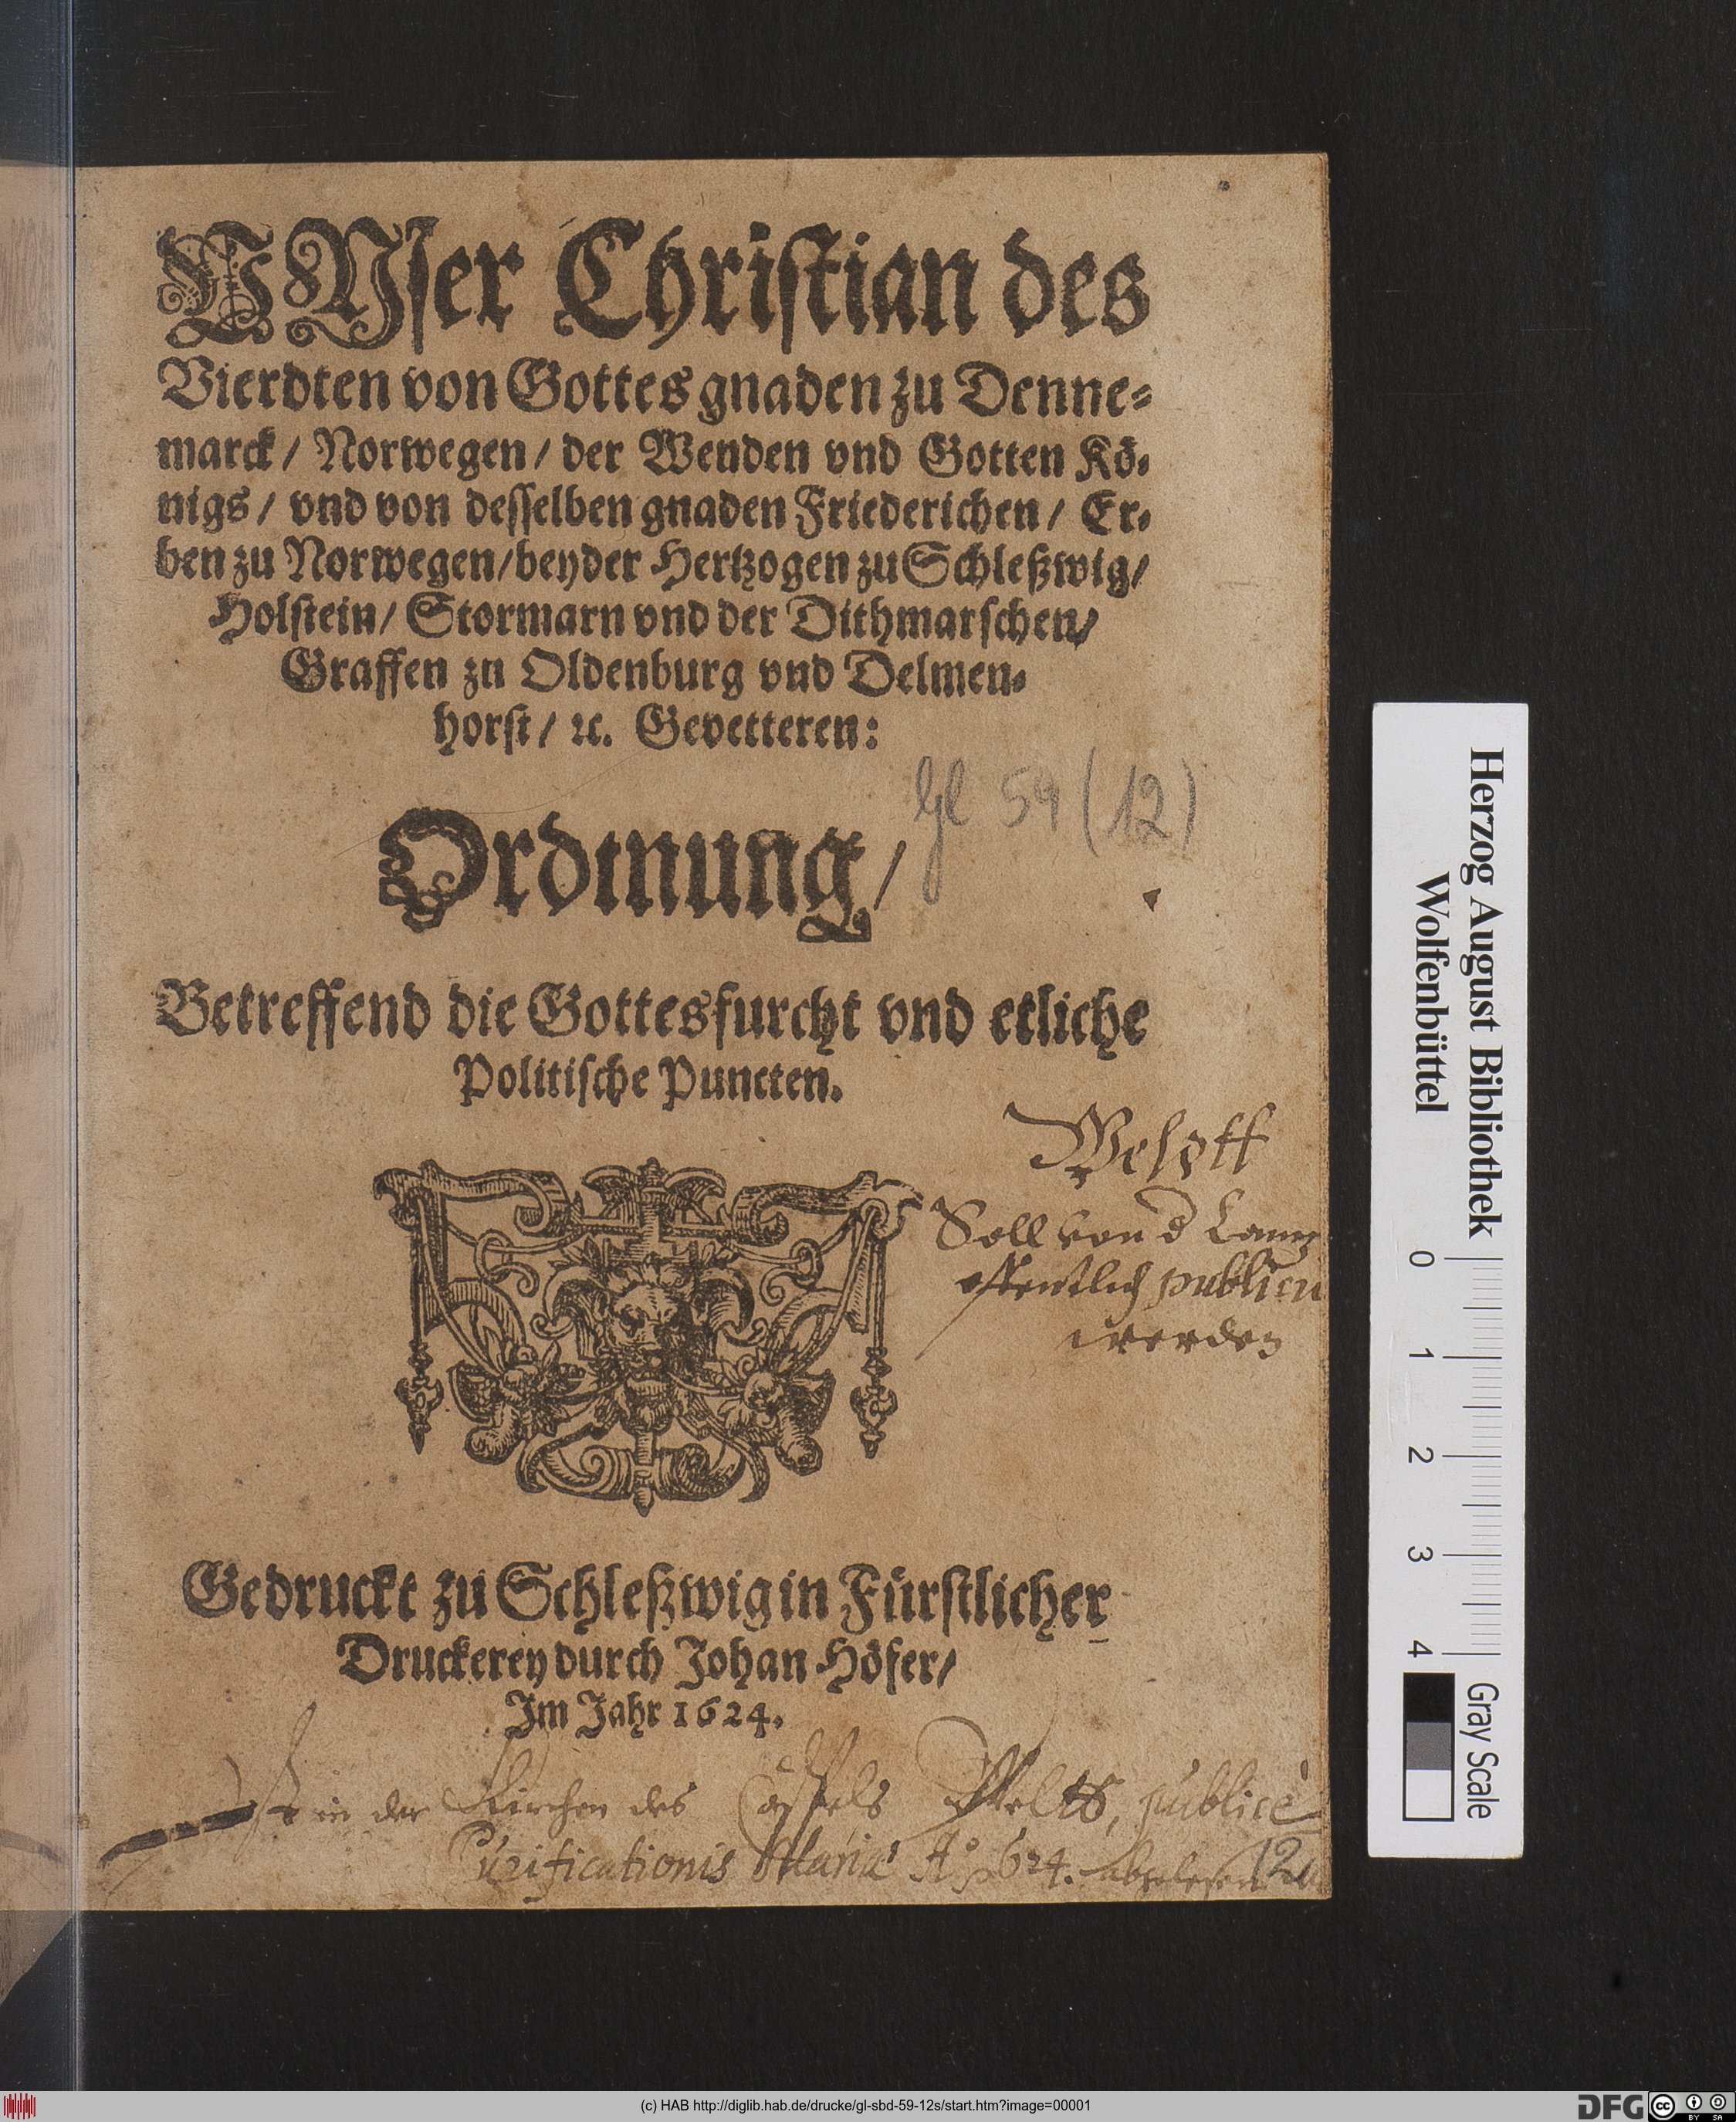 VNser Christian des
Vierdten von Gottes gnaden zu Denne⸗
marck/ Norwegen/ der Wenden vnd Gotten Kö⸗
nigs/ vnd von desselben gnaden Friederichen/ Er⸗
ben zu Norwegen/beyder Hertzogen zu Schleßwig/
Holstein/ Stormarn vnd der Dithmarschen/
Graffen zu Oldenburg vnd Delmen⸗
horst/ ꝛc. Gevetteren:
gl 59 (12)
Ordtnung/
Betreffend die Gottesfurcht vnd etliche
Politische Puncten.
Soll von d
offentlich
werden
Gedruckt zu Schleßwig in Fürstlicher
Druckerey durch Johan Höfer/
Im Jahr 1624.
in der Kirchen des publicè
Purificationis Mariæ Aº 624. abgelesen
Herzog August Bibliothek
Wolfenbüttel
0 1 2 3 4
Gray Scale
(c) HAB http://diglib.hab.de/drucke/gl-sbd-59-12s/start.htm?image=00001
DFG
cc
BY SA